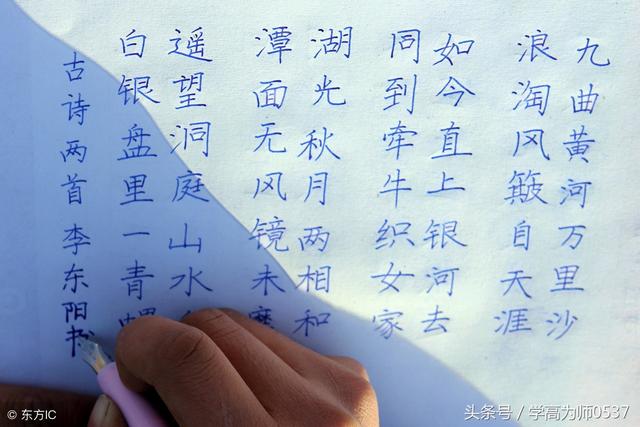 九曲黄河万里沙
浪淘风簸自天涯
如今直上银河去
同到牵牛织女家
湖光秋月两相和
潭面无风镜未磨
遥望洞庭山水
白银盘里一青
古诗两首李东阳书
© 东方IC
头条号／学高为师0537